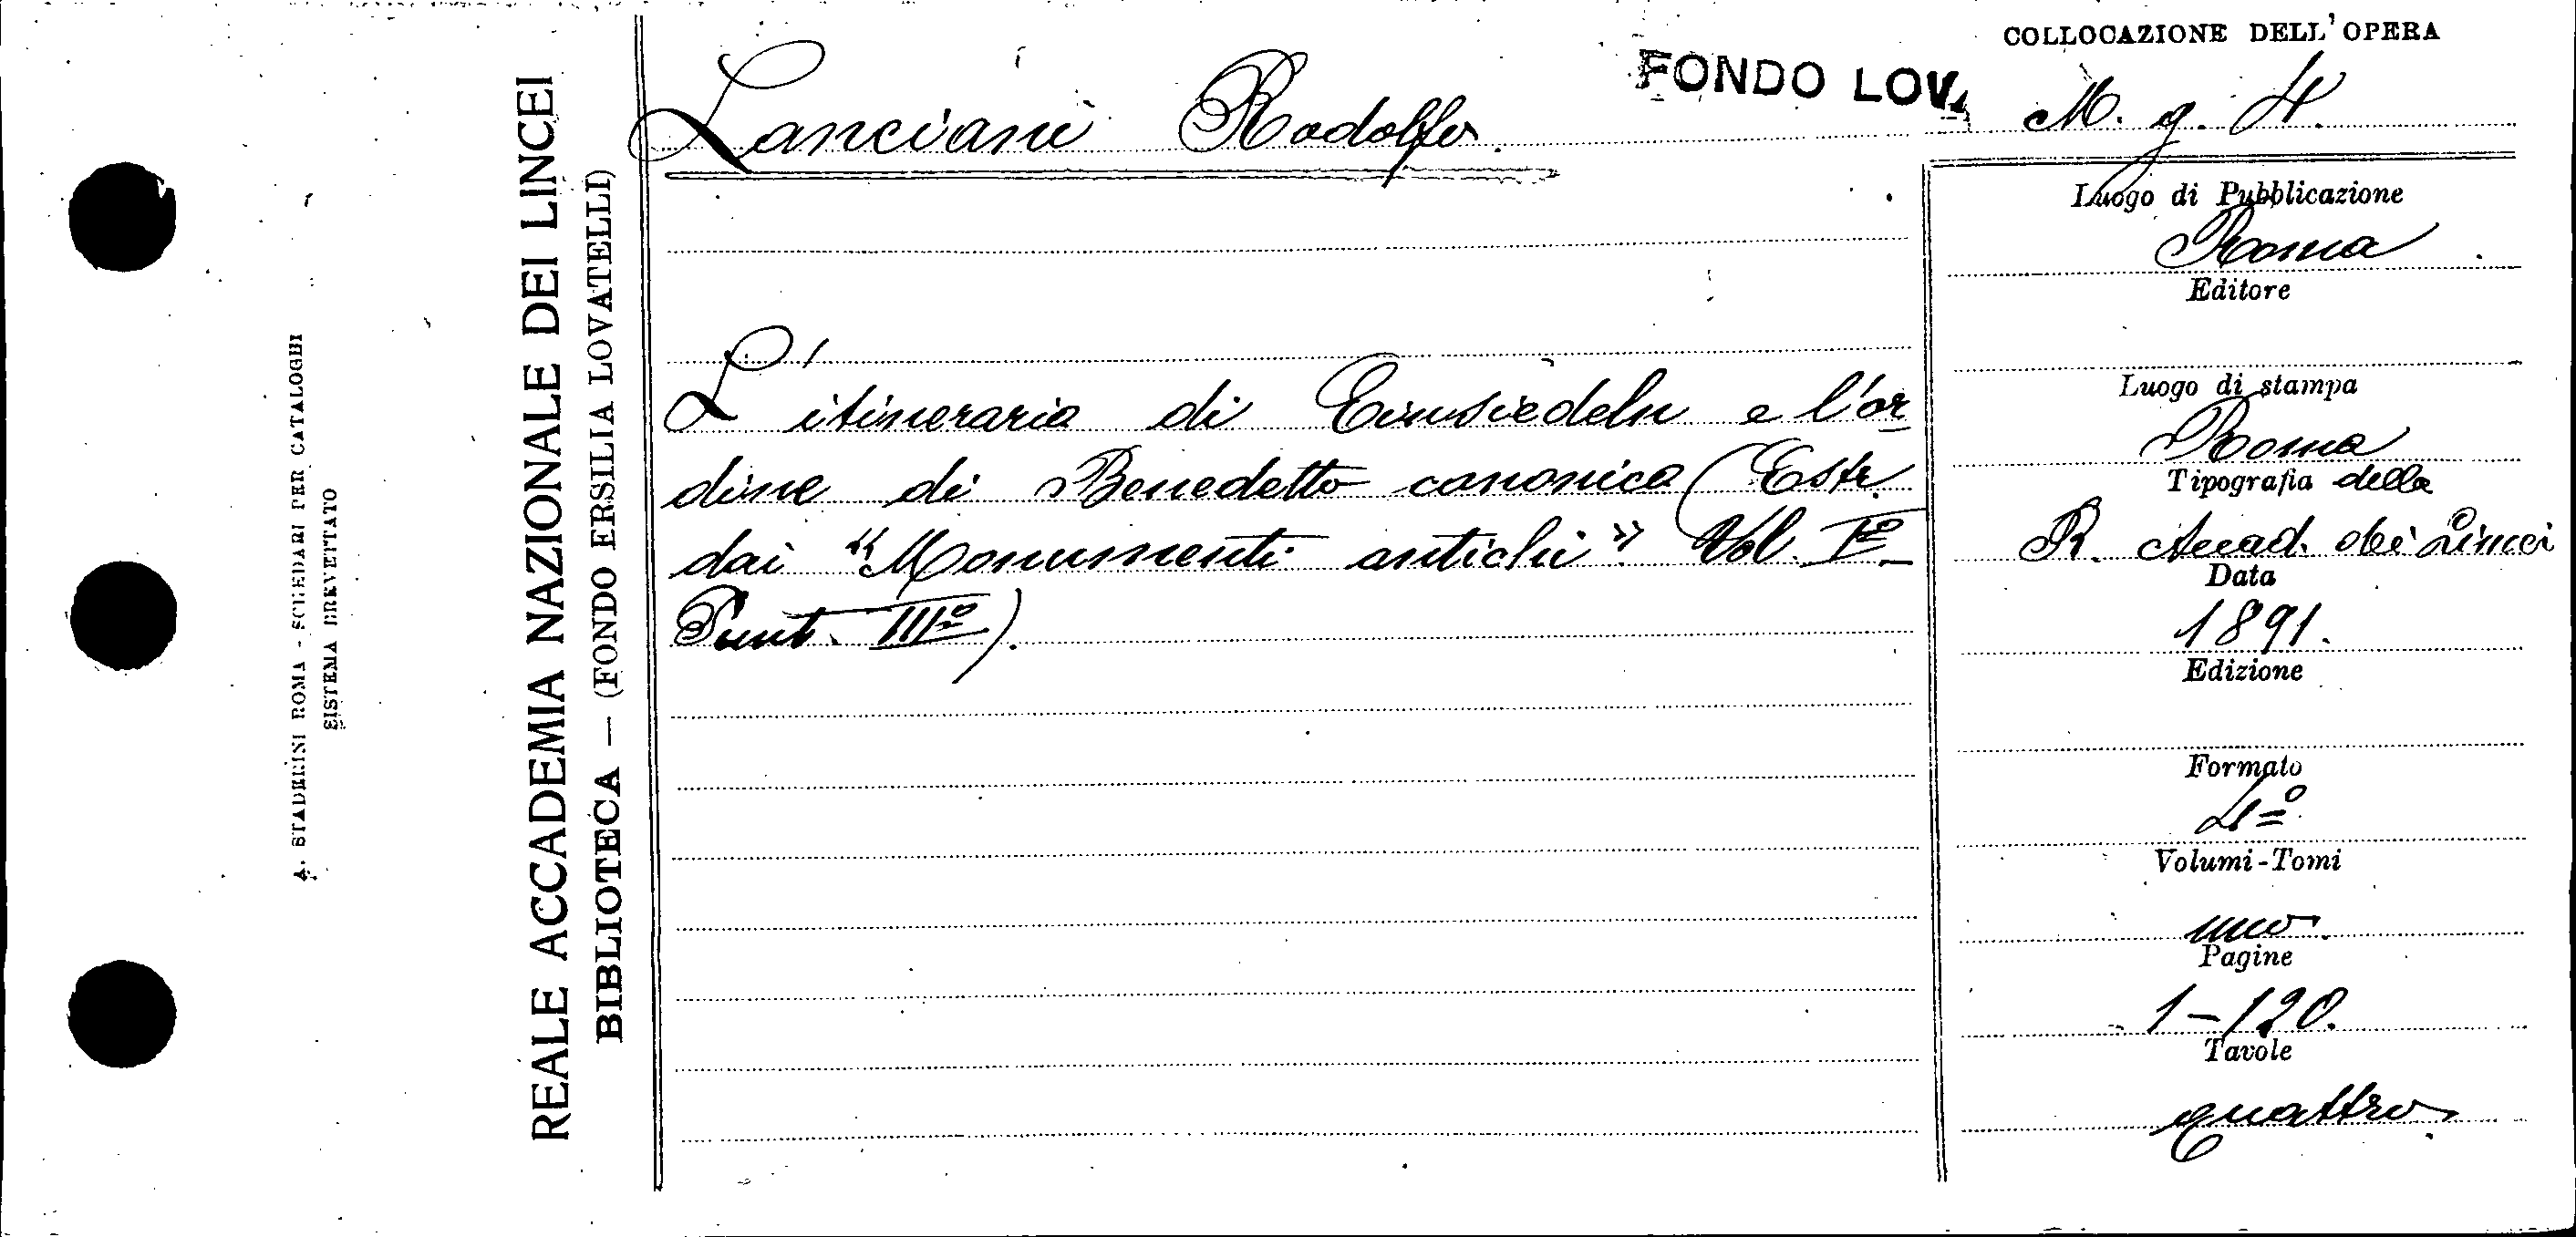 A. STADERINI ROMA - SCHEDARI PER CATALOGHI
SISTEMA BREVETTATO
REALE ACCADEMIA NAZIONALE DEI LINCEI
BIBLIOTECA — (FONDO ERSILIA LOVATELLI)
Lanciani Rodolfo.
FONDO LOV.
L'itinerario di Einsiedeln e l'or
dine di Benedetto canonico (Estr.
dai "Monumenti antichi" Vol. Iº
Punt. IIIº).
COLLOCAZIONE DELL'OPERA
M. g. 4.
Luogo di Pubblicazione
Roma
Editore
Luogo di stampa
Roma
Tipografia della
R. Accad. dei Lincei
Data
1891.
Edizione
Formato
4º
Volumi-Tomi
uno.
Pagine
1-120.
Tavole
quattro